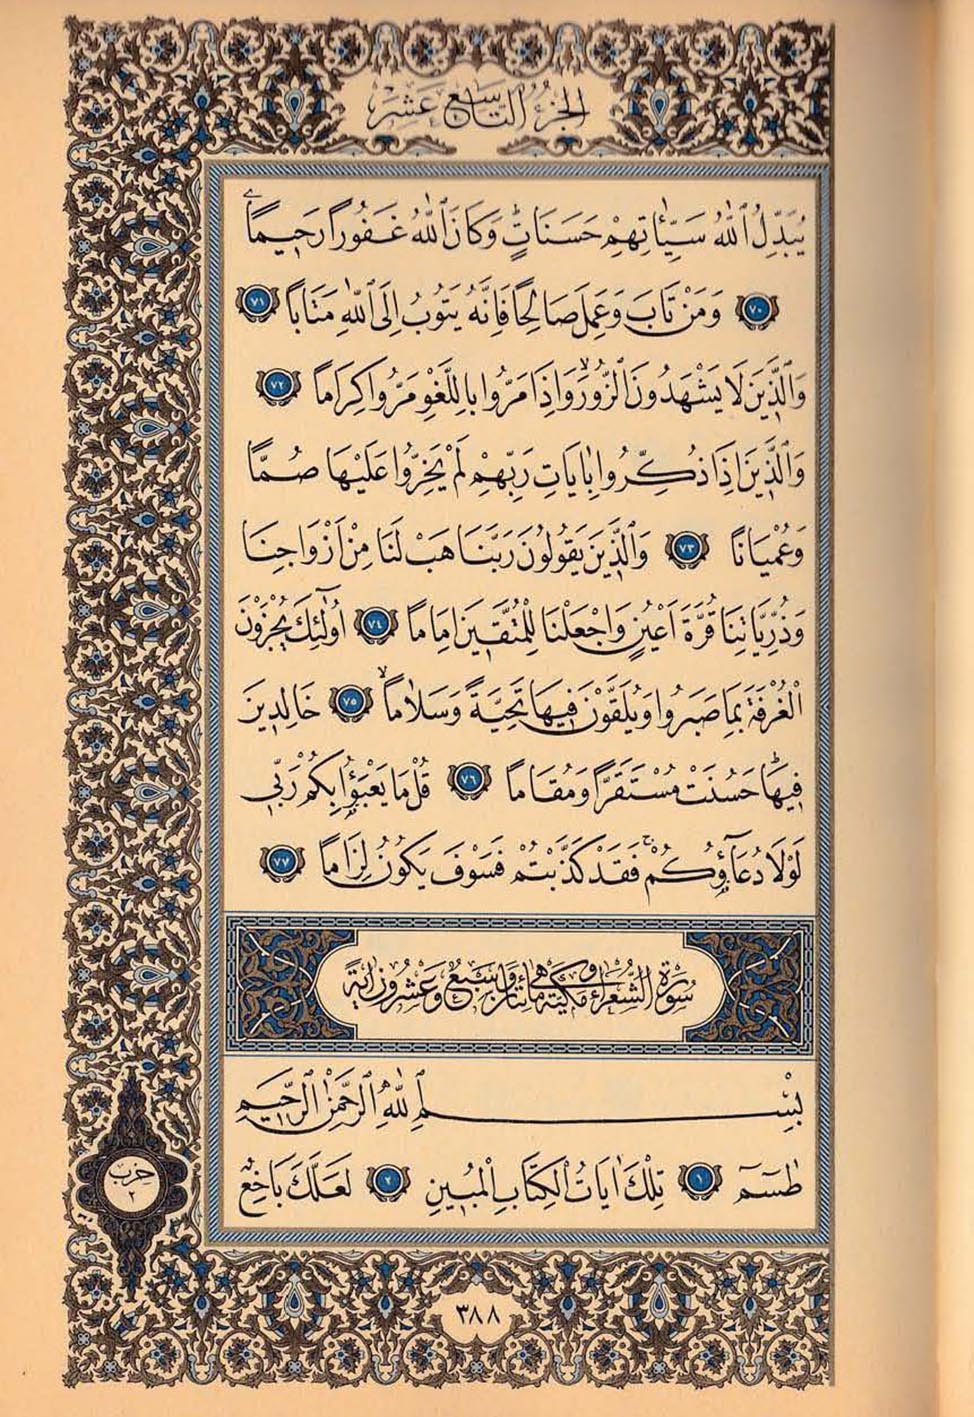 الجزء التاسع عشر
يُبَدِّلُ ٱللّٰهُ سَيِّـَٔاتِهِمْ حَسَنَاتٍؕ وَكَانَ ٱللّٰهُ غَفُورًا رَحٖيمًا
﴿٧٠﴾ وَمَنْ تَابَ وَعَمِلَ صَالِحًا فَاِنَّهُ يَتُوبُ اِلَى ٱللّٰهِ مَتَابًا ﴿٧١﴾
وَٱلَّذٖينَ لَا يَشْهَدُونَ ٱلزُّورَۙ وَاِذَا مَرُّوا بِاللَّغْوِ مَرُّوا كِرَامًا ﴿٧٢﴾
وَٱلَّذٖينَ اِذَا ذُكِّرُوا بِاٰيَاتِ رَبِّهِمْ لَمْ يَخِرُّوا عَلَيْهَا صُمًّا
وَعُمْيَانًا ﴿٧٣﴾ وَٱلَّذٖينَ يَقُولُونَ رَبَّنَا هَبْ لَنَا مِنْ اَزْوَاجِنَا
وَذُرِّيَّاتِنَا قُرَّةَ اَعْيُنٍ وَاجْعَلْنَا لِلْمُتَّقٖينَ اِمَامًا ﴿٧٤﴾ اُولٰٓئِكَ يُجْزَوْنَ
الْغُرْفَةَ بِمَا صَبَرُوا وَيُلَقَّوْنَ فٖيهَا تَحِيَّةً وَسَلَامًاۙ ﴿٧٥﴾ خَالِدٖينَ
فٖيهَاؕ حَسُنَتْ مُسْتَقَرًّا وَمُقَامًا ﴿٧٦﴾ قُلْ مَا يَعْبَؤُا بِكُمْ رَبّٖى
لَوْلَا دُعَآؤُ۬كُمْۚ فَقَدْ كَذَّبْتُمْ فَسَوْفَ يَكُونُ لِزَامًا ﴿٧٧﴾
سُورَةُ الشُّعَرَاءِ مَكِّيَّةٌ وَهِىَ مِائَتَانِ وَسَبْعٌ وَعِشْرُونَ اٰيَةً
بِسْمِ ٱللّٰهِ ٱلرَّحْمٰنِ ٱلرَّحٖيمِ
طٰسٓمٓ ﴿١﴾ تِلْكَ اٰيَاتُ الْكِتَابِ الْمُبٖينِ ﴿٢﴾ لَعَلَّكَ بَاخِعٌ
حزب
٢
٣٨٨